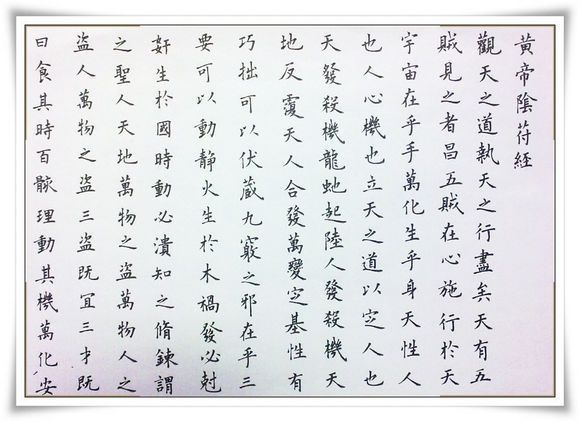 黃帝陰苻經
觀天之道執天之行盡矣天有五
賊見之者昌五賊在心施行於天
宇宙在乎手萬化生乎身天性人
也人心機也立天之道以定人也
天發殺機龍虵起陸人發殺機天
地反覆天人合發萬變定基性有
巧拙可以伏藏九竅之邪在乎三
要可以動靜火生於木禍發必尅
姧生於國時動必潰知之脩鍊謂
之聖人天地萬物之盜萬物人之
盜人萬物之盜三盜既宜三才既
曰食其時百骸理動其機萬化安